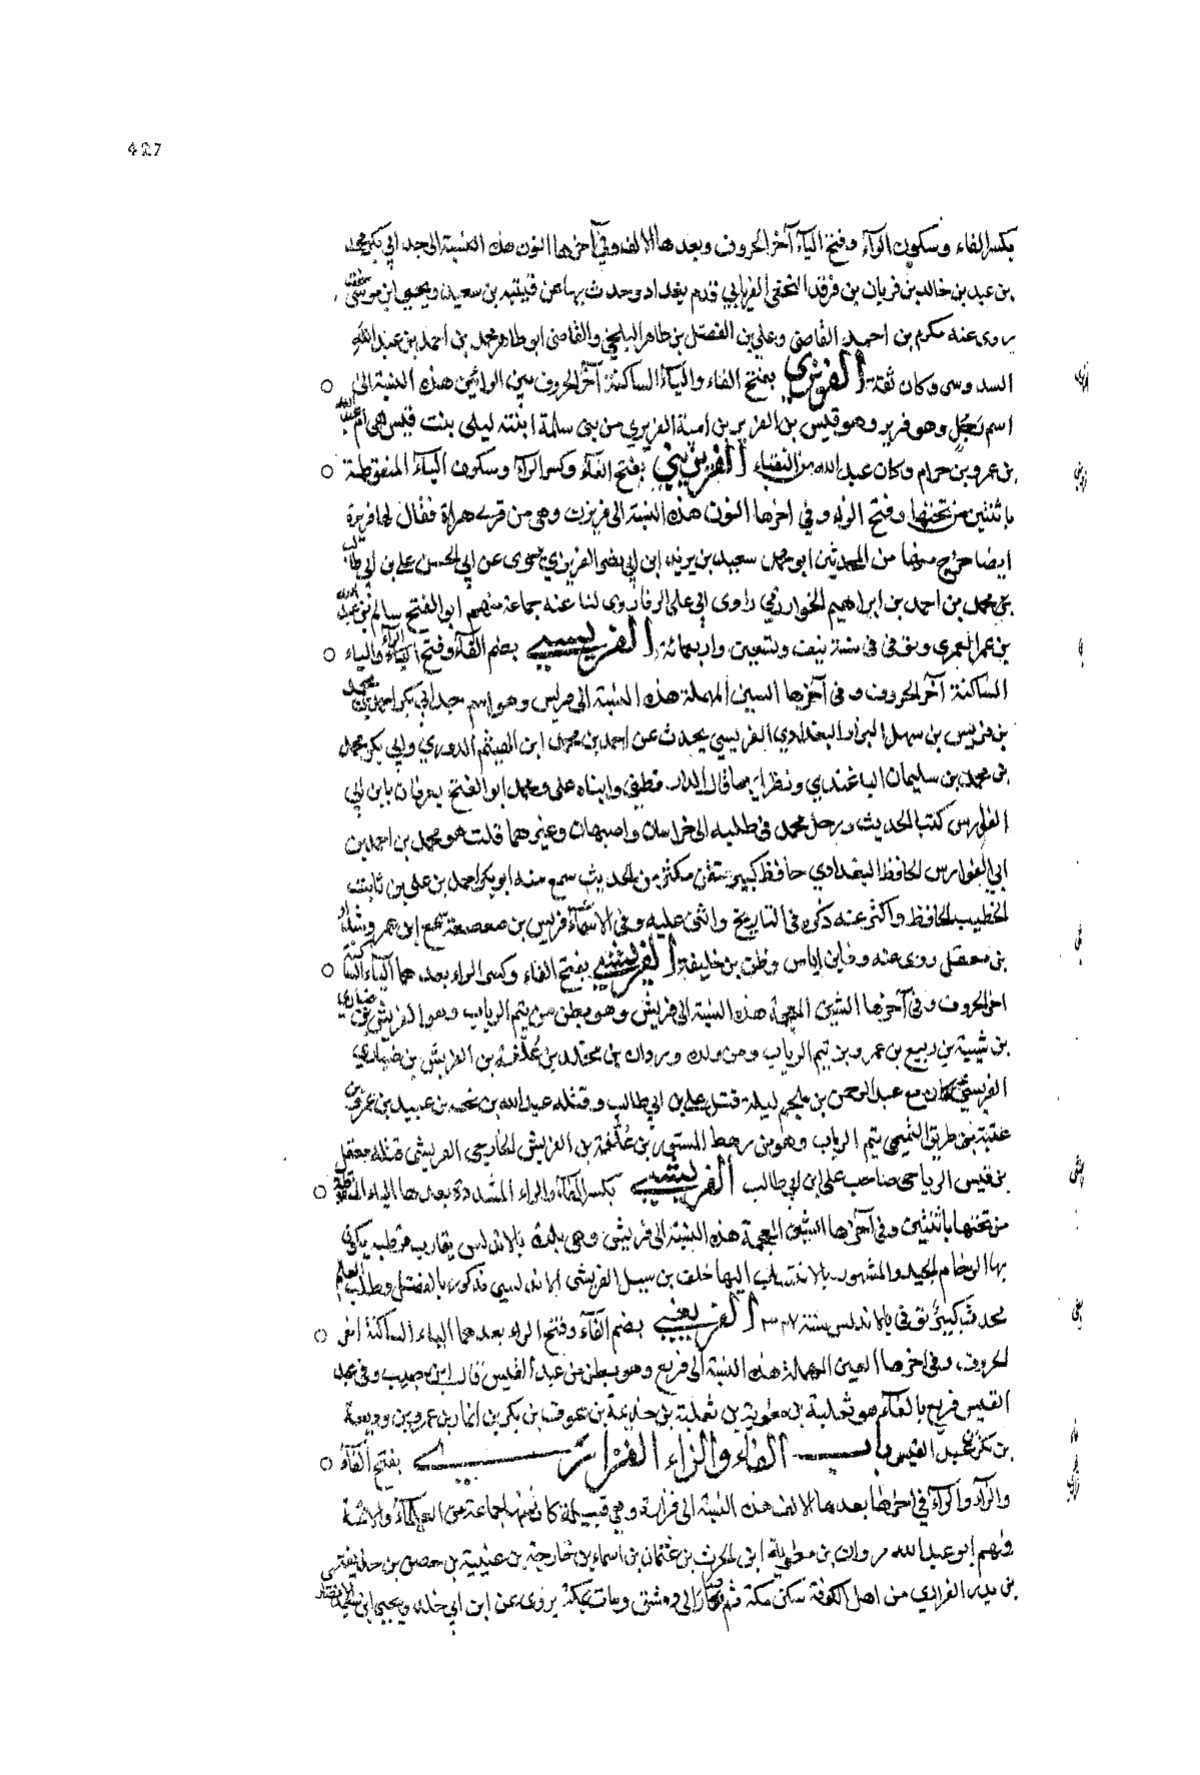 427
بكسر الفاء وسكون الراء وفتح الياء آخر الحروف وبعدها الالف وفي آخرها النون هذه النسبة الى جد ابي بكر محمد
بن عبد بن خالد بن فريان بن فرقد النخعي الفرياني قدم بغداد وحدث بها عن قتيبة بن سعيد ويحيى بن موسى
روى عنه مكرم بن احمد القاضي وعلي بن الفضل بن طاهر البلخي والقاضي ابو طاهر محمد بن احمد بن عبد الله
السدوسي وكان ثقة الفريري بفتح الفاء والياء الساكنة آخر الحروف بين الرائين هذه النسبة الى
اسم رجل وهو فرير وهو قيس بن الفرير بن امية الفريري من بني سلمة ابنته ليلى بنت قيس هي ام عبد الله
بن عمرو بن حرام وكان عبد الله من النقباء الفريزني بفتح الفاء وكسر الراء وسكون الياء المنقوطة
باثنتين من تحتها وفتح الزاي وفي اخرها النون هذه النسبة الى فريزن وهي من قرى هراة فقال لها فريزة
ايضا خرج منها من المحدثين ابو محمد سعيد بن يزيد ابن ابي نصر الفريزني يروى عن ابي الحسن علي بن ابي طالب
بن محمد بن احمد بن ابراهيم الخوارزمي راوى ابي علي الرفا روى لنا عنه جماعة منهم ابو الفتح سالم بن عبد الله
بن عمر العمرى وتوفى فى سنة نيف وتسعين واربعمائة الفريسي بضم الفاء وفتح الراء والياء
الساكنة آخر الحروف وفى آخرها السين المهملة هذه النسبة الى فريس وهو اسم جد ابي بكر احمد بن محمد
بن فريس بن سهل البزار البغدادي الفريسي يحدث عن احمد بن محمد ابن الهيثم الدوري وابي بكر محمد
بن محمد بن سليمان الباغندي ونظرايهما قال الدارقطني وابناه علي ومحمد ابو الفتح يعرفان بابن ابي
الفوارس كتبا الحديث ورحل محمد فى طلبه الى خراسان واصبهان وغيرهما قلت هو محمد بن احمد بن
ابي الفوارس الحافظ البغدادي حافظ كبير متقن مكثر من الحديث سمع منه ابو بكر احمد بن علي بن ثابت
الخطيب الحافظ واكثر عنه ذكره فى التاريخ واثنى عليه وفى الاسماء فريس بن صعصعة سمع ابن عمر وشداد
بن معقل روى عنه وقاء بن اياس وفطر بن خليفة الفريشي بفتح الفاء وكسر الراء بعدهما الياء الساكنة
اخر الحروف وفى آخرها الشين المعجمة هذه النسبة الى فريش وهو بطن من تيم الرباب وهو الفريش بن ضباري
بن شيبة بن ربيع بن عمرو بن تيم الرباب ومن ولده وردان بن مجالد بن علفة بن الفريش بن ضباري
الفريشي كان مع عبد الرحمن بن ملجم ليلة قتل علي بن ابي طالب وقتله عبد الله بن نجبة بن عبيد بن عمرو بن
عتبة بن طريق التيمي تيم الرباب وهو من رهط المستورد بن علفة بن الفريش الخارجي الفريشي قتله معقل
بن قيس الرياحى صاحب على ابن ابي طالب الفريشي بكسر الفاء والراء المشددة بعدها الياء المنقوطة
من تحتها باثنتين وفى آخرها الشين المعجمة هذه النسبة الى فريش وهى بلدة بالاندلس يقارب قرطبة يكون
بها الرخام الجيد والمشهور بالانتساب اليها خلف بن سيل الفريشي الاندلسي مذكور بالفضل وطلب العلم
محدث كبير توفى بالاندلس سنة ٣٢٧ الفريعي بضم الفاء وفتح الراء بعدهما الياء الساكنة اخر
الحروف وفى اخرها العين المهملة هذه النسبة الى فريع وهو بطن من عبد القيس قال ابن حبيب وفى عبد
القيس فريع بالفاء هو ثعلبة بن معوية بن ثعلبة بن جذيمة بن عوف بن بكر بن انمار بن عمرو بن وديعة
بن لكيز بن عبد القيس باب الفاء والزاء الفزاري بفتح الفاء
والزاء والراء في اخرها بعدها الالف هذه النسبة الى فزارة وهي قبيلة كان منها جماعة من العلماء والائمة
ومنهم ابو عبد الله مروان بن معوية ابن الحرث بن عثمان بن اسماء بن خارجة بن عيينة بن حصن بن حذيفة
بن بدر الفزاري من اهل الكوفة سكن مكة ثم صار الى دمشق ومات بمكة يروى عن ابن ابي خالد ويحيى ابن سعيد الانصارى